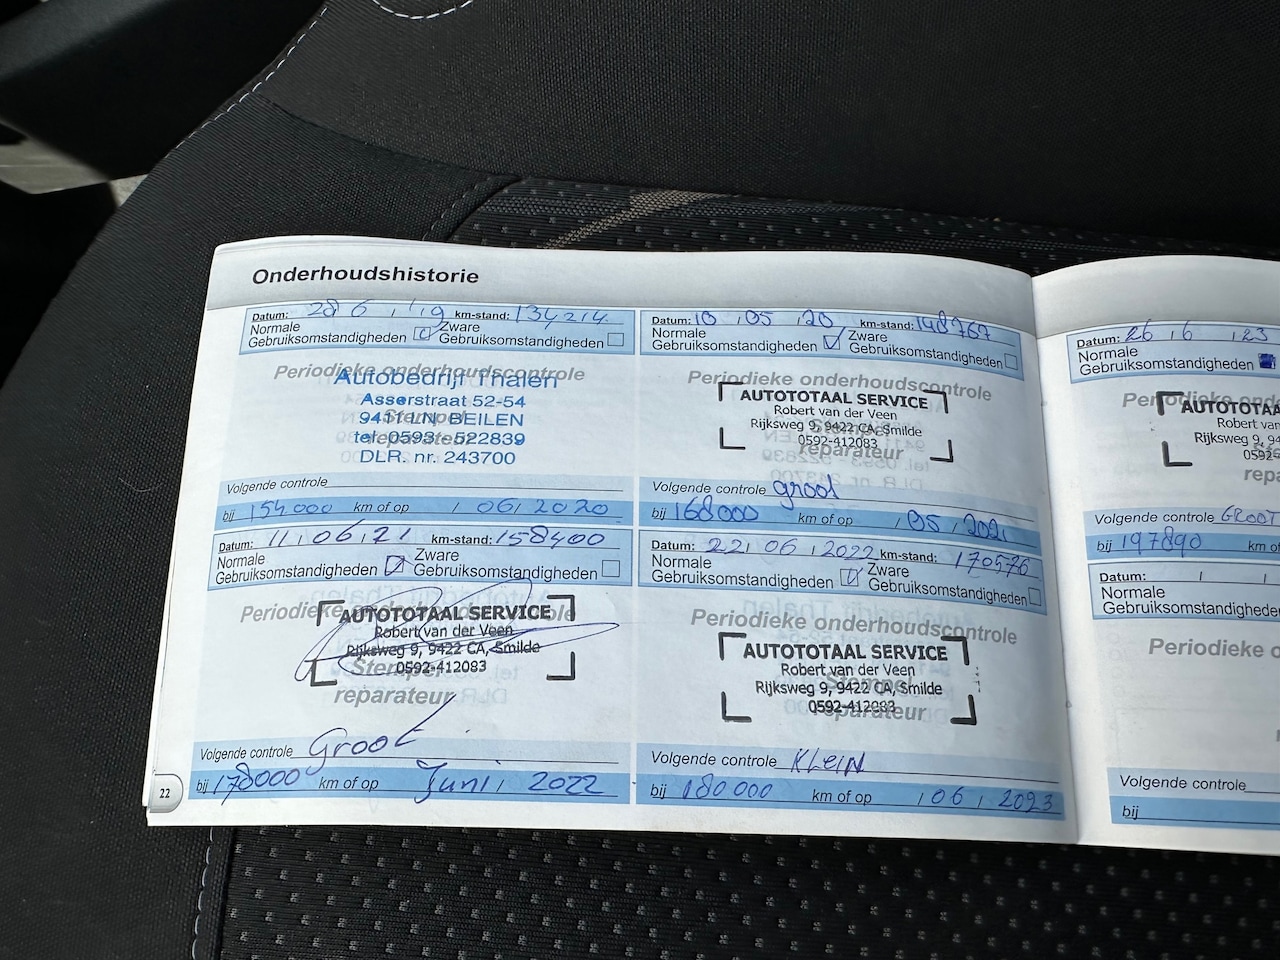 Onderhoudshistorie
Datum: 28 6 '19 km-stand: 134214
Normale Gebruiksomstandigheden Zware Gebruiksomstandigheden
Periodieke onderhoudscontrole
Autobedrijf Thalen
Asserstraat 52-54
9411 LN BEILEN
Stempel
tel. 0593 - 522839
reparateur
DLR. nr. 243700
Volgende controle
bij 154000 km of op / 06 / 2020
Datum: 10 / 05 / 20 km-stand: 148767
Normale Gebruiksomstandigheden Zware Gebruiksomstandigheden
Periodieke onderhoudscontrole
AUTOTOTAAL SERVICE
Robert van der Veen
Rijksweg 9, 9422 CA, Smilde
Stempel
0592-412083
reparateur
Volgende controle groot
bij 168000 km of op / 05 / 2021
Datum: 11 / 06 / 21 km-stand: 158400
Normale Gebruiksomstandigheden Zware Gebruiksomstandigheden
Periodieke onderhoudscontrole
AUTOTOTAAL SERVICE
Robert van der Veen
Rijksweg 9, 9422 CA, Smilde
Stempel
0592-412083
reparateur
Volgende controle Groot
bij 178000 km of op Juni / 2022
Datum: 22 / 06 / 2022 km-stand: 170576
Normale Gebruiksomstandigheden Zware Gebruiksomstandigheden
Periodieke onderhoudscontrole
AUTOTOTAAL SERVICE
Robert van der Veen
Rijksweg 9, 9422 CA, Smilde
Stempel
0592-412083
reparateur
Volgende controle KLEIN
bij 180000 km of op / 06 / 2023
22
Datum: 26 / 6 / 23
Normale
Gebruiksomstandigheden
Periodieke ond
AUTOTOTAA
Robert van
Rijksweg 9, 94
0592
repa
Volgende controle GROOT
bij 197890 km o
Datum: / /
Normale
Gebruiksomstandighede
Periodieke o
Volgende controle
bij